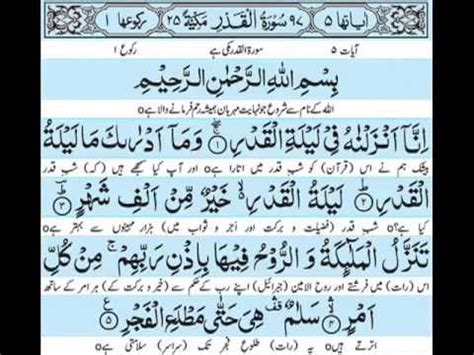 اٰیاتها ٥ ٩٧ سُوْرَةُ الْقَدْرِ مَكِّيَّةٌ ٢٥ رکوعها ١
آیات ٥ سورۃ القدر مکی ہے رکوع ١
بِسْمِ اللهِ الرَّحْمٰنِ الرَّحِيْمِ
اللہ کے نام سے شروع جو نہایت مہربان ہمیشہ رحم فرمانے والا ہے٥
اِنَّاۤ اَنْزَلْنٰهُ فِيْ لَيْلَةِ الْقَدْرِ ۚۖ ١ وَمَاۤ اَدْرٰىكَ مَا لَيْلَةُ
بیشک ہم نے اس (قرآن) کو شبِ قدر میں اتارا ہے٥ اور آپ کیا سمجھے ہیں (کہ) شبِ قدر
الْقَدْرِ ؕ ٢ لَيْلَةُ الْقَدْرِ ۙ۬ خَيْرٌ مِّنْ اَلْفِ شَهْرٍ ؕؔ ٣
کیا ہے؟٥ شبِ قدر (فضیلت و برکت اور اجر و ثواب میں) ہزار مہینوں سے بہتر ہے٥
تَنَزَّلُ الْمَلٰٓئِكَةُ وَ الرُّوْحُ فِيْهَا بِاِذْنِ رَبِّهِمْ ۚ مِنْ كُلِّ
اس (رات) میں فرشتے اور روح الامین (جبرائیل) اپنے رب کے حکم سے (خیر و برکت کے) ہر امر کے ساتھ
اَمْرٍ ۙۛ ٤ سَلٰمٌ ۛ۫ هِيَ حَتّٰى مَطْلَعِ الْفَجْرِ ٥
اترتے ہیں٥ یہ (رات) طلوعِ فجر تک (سراسر) سلامتی ہے٥